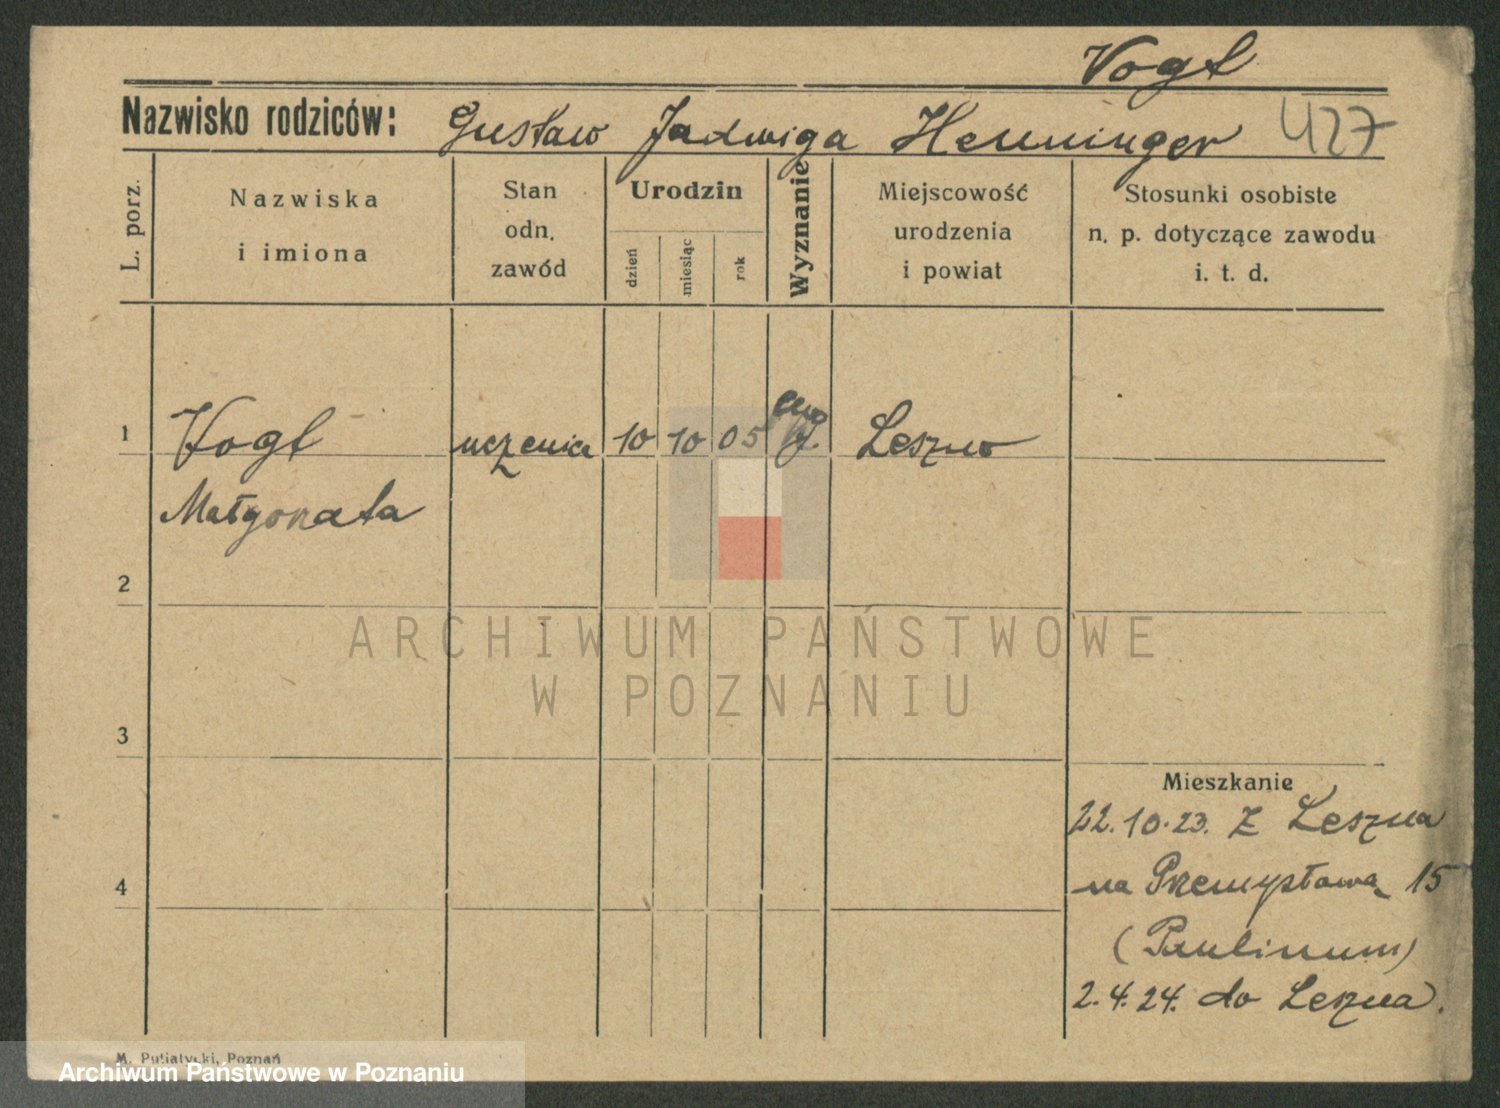 Vogt
Nazwisko rodziców: Gustaw Jadwiga Henninger 427
L. porz.
Nazwiska
i imiona
Stan
odn.
zawód
Urodzin
dzień
miesiąc
rok
Wyznanie
Miejscowość
urodzenia
i powiat
Stosunki osobiste
n. p. dotyczące zawodu
i. t. d.
1 Vogt uczenica 10 10 05 Leszno
Małgorzata
2
ARCHIWUM PAŃSTWOWE
W POZNANIU
3
Mieszkanie
22.10.23. z Leszna
4 na Przemysłową 15
(Paulinum)
2.4.24. do Leszna.
M. Putiatycki, Poznań
Archiwum Państwowe w Poznaniu